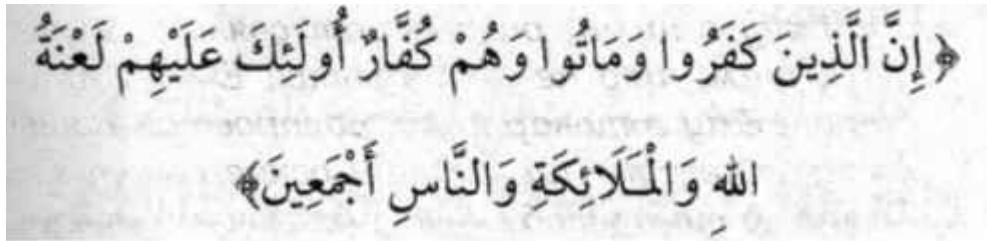 ﴿ إِنَّ الَّذِينَ كَفَرُوا وَمَاتُوا وَهُمْ كُفَّارٌ أُولَئِكَ عَلَيْهِمْ لَعْنَةُ
اللهِ وَالْمَلَائِكَةِ وَالنَّاسِ أَجْمَعِينَ﴾